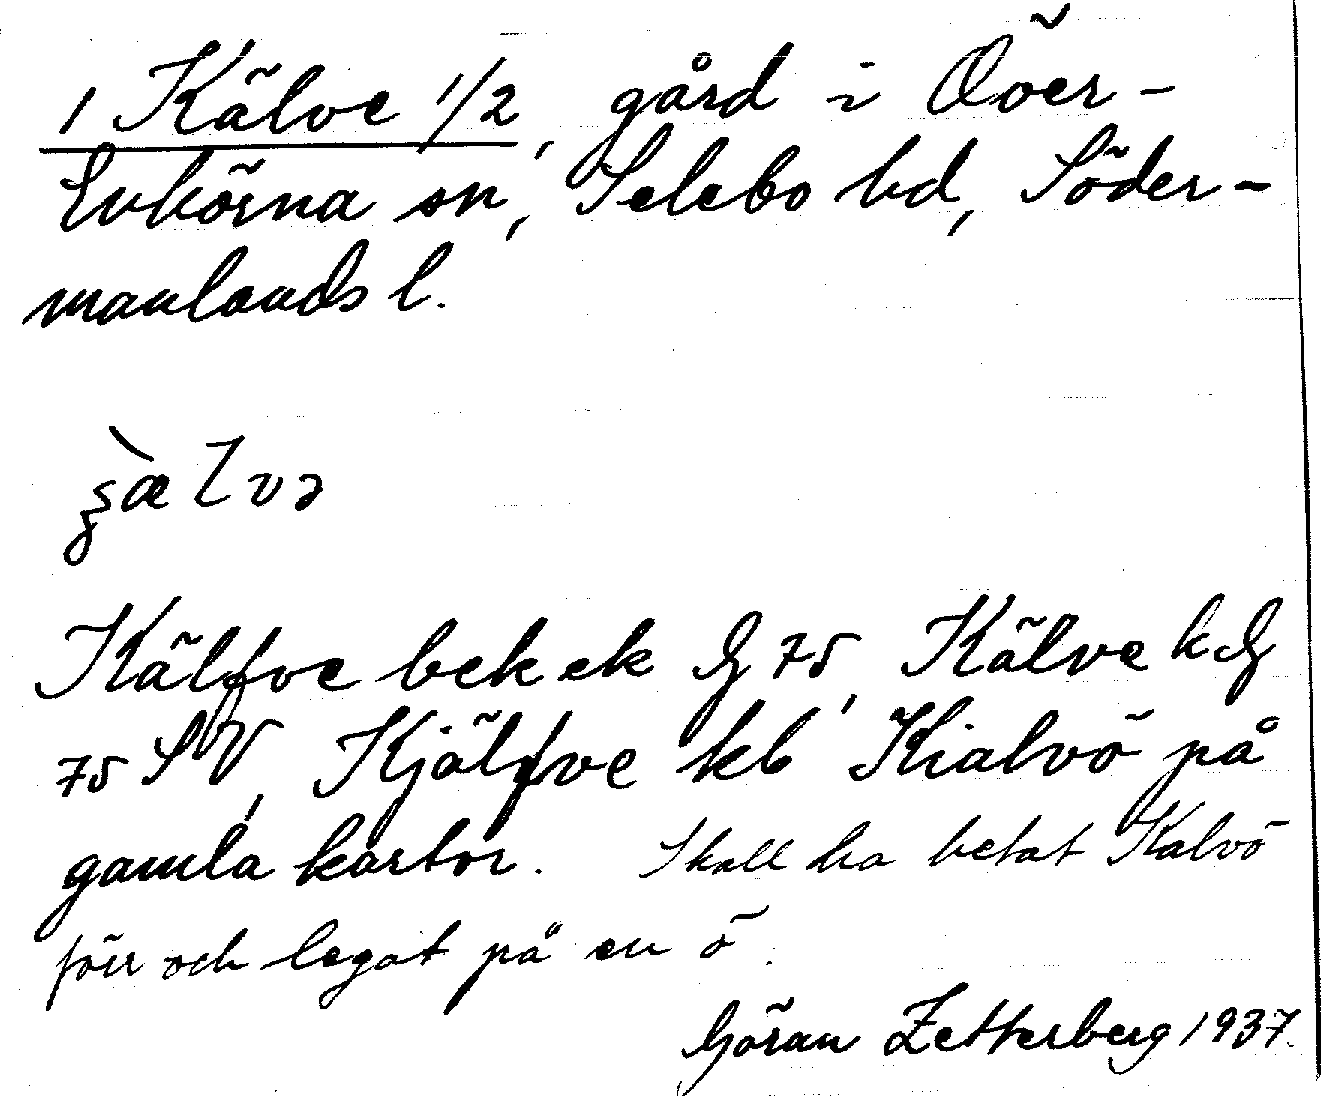 1 Kälve 1/2, gård i Över-
Enhörna sn, Selebo hd, Söder-
manlands l.
Kälfve bek ek G 75, Kälve k G
75 SV, Kjälfve kb Kialvö på
gamla kartor. Skall ha hetat Kalvö
förr och legat på en ö.
Göran Zetterberg 1937.